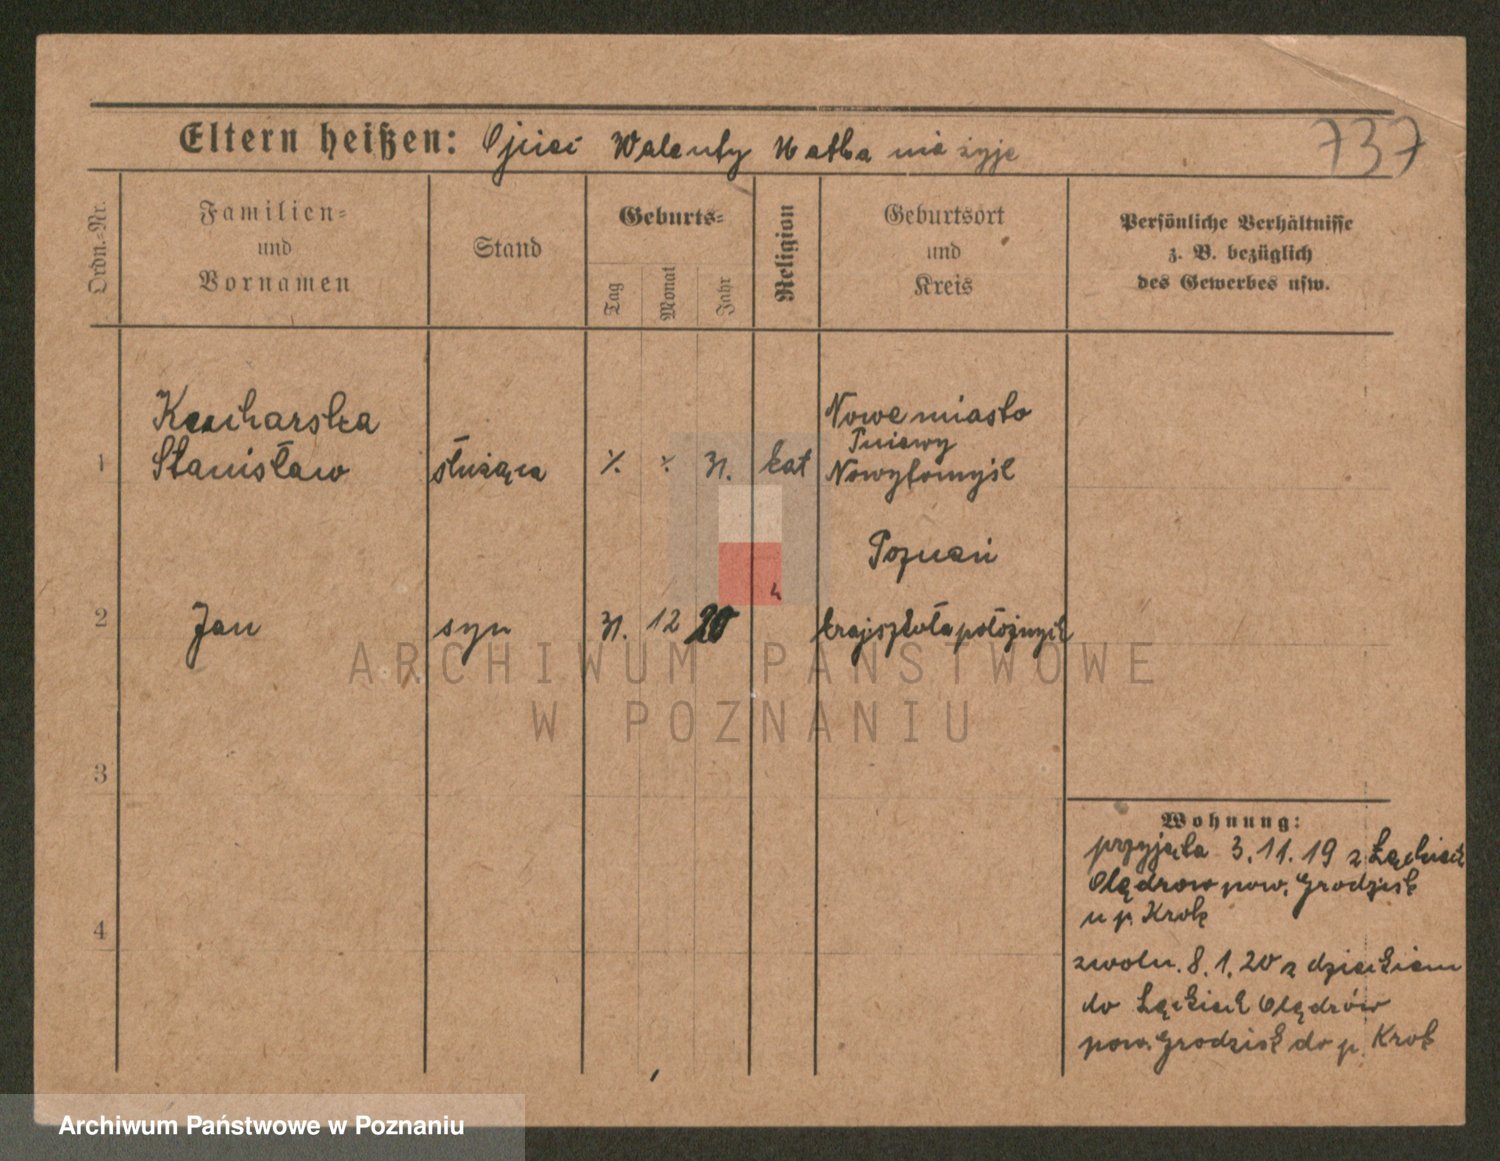 737
Eltern heißen: Ojciec Walenty Watka nie żyje
Ordn.-Nr.
Familien-
und
Vornamen
Stand
Geburts-
Tag
Monat
Jahr
Religion
Geburtsort
und
Kreis
Persönliche Verhältnisse
z. B. bezüglich
des Gewerbes usw.
Kucharska
Nowe miasto
Pniewy
1 Stanisław służąca 31. kat Nowytomyśl
Poznań
2 Jan syn 31. 12 20 krajszkoła położnych
3
4
Wohnung:
przyjęta 3.11.19 z Łąckich
Olędrow pow. Grodzisk
u p. Krok
zwoln. 8.1.20 z dzieckiem
do Łąckich Olędrów
pow. Grodzisk do p. Krok
ARCHIWUM PAŃSTWOWE
W POZNANIU
Archiwum Państwowe w Poznaniu